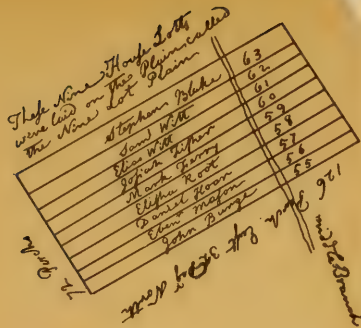 These Nine House Lotts
were laid on the Plain called
the Nine Lot Plain
Stephen Blake 63
Saml Witt 62
Elias Witt 61
Josiah Fisher 60
Mark Ferry 59
Elisha Root 58
Daniel Hoar 57
Eben Mason 56
John Bunge 55
72 Perche
126 Perch East 39 Degr North